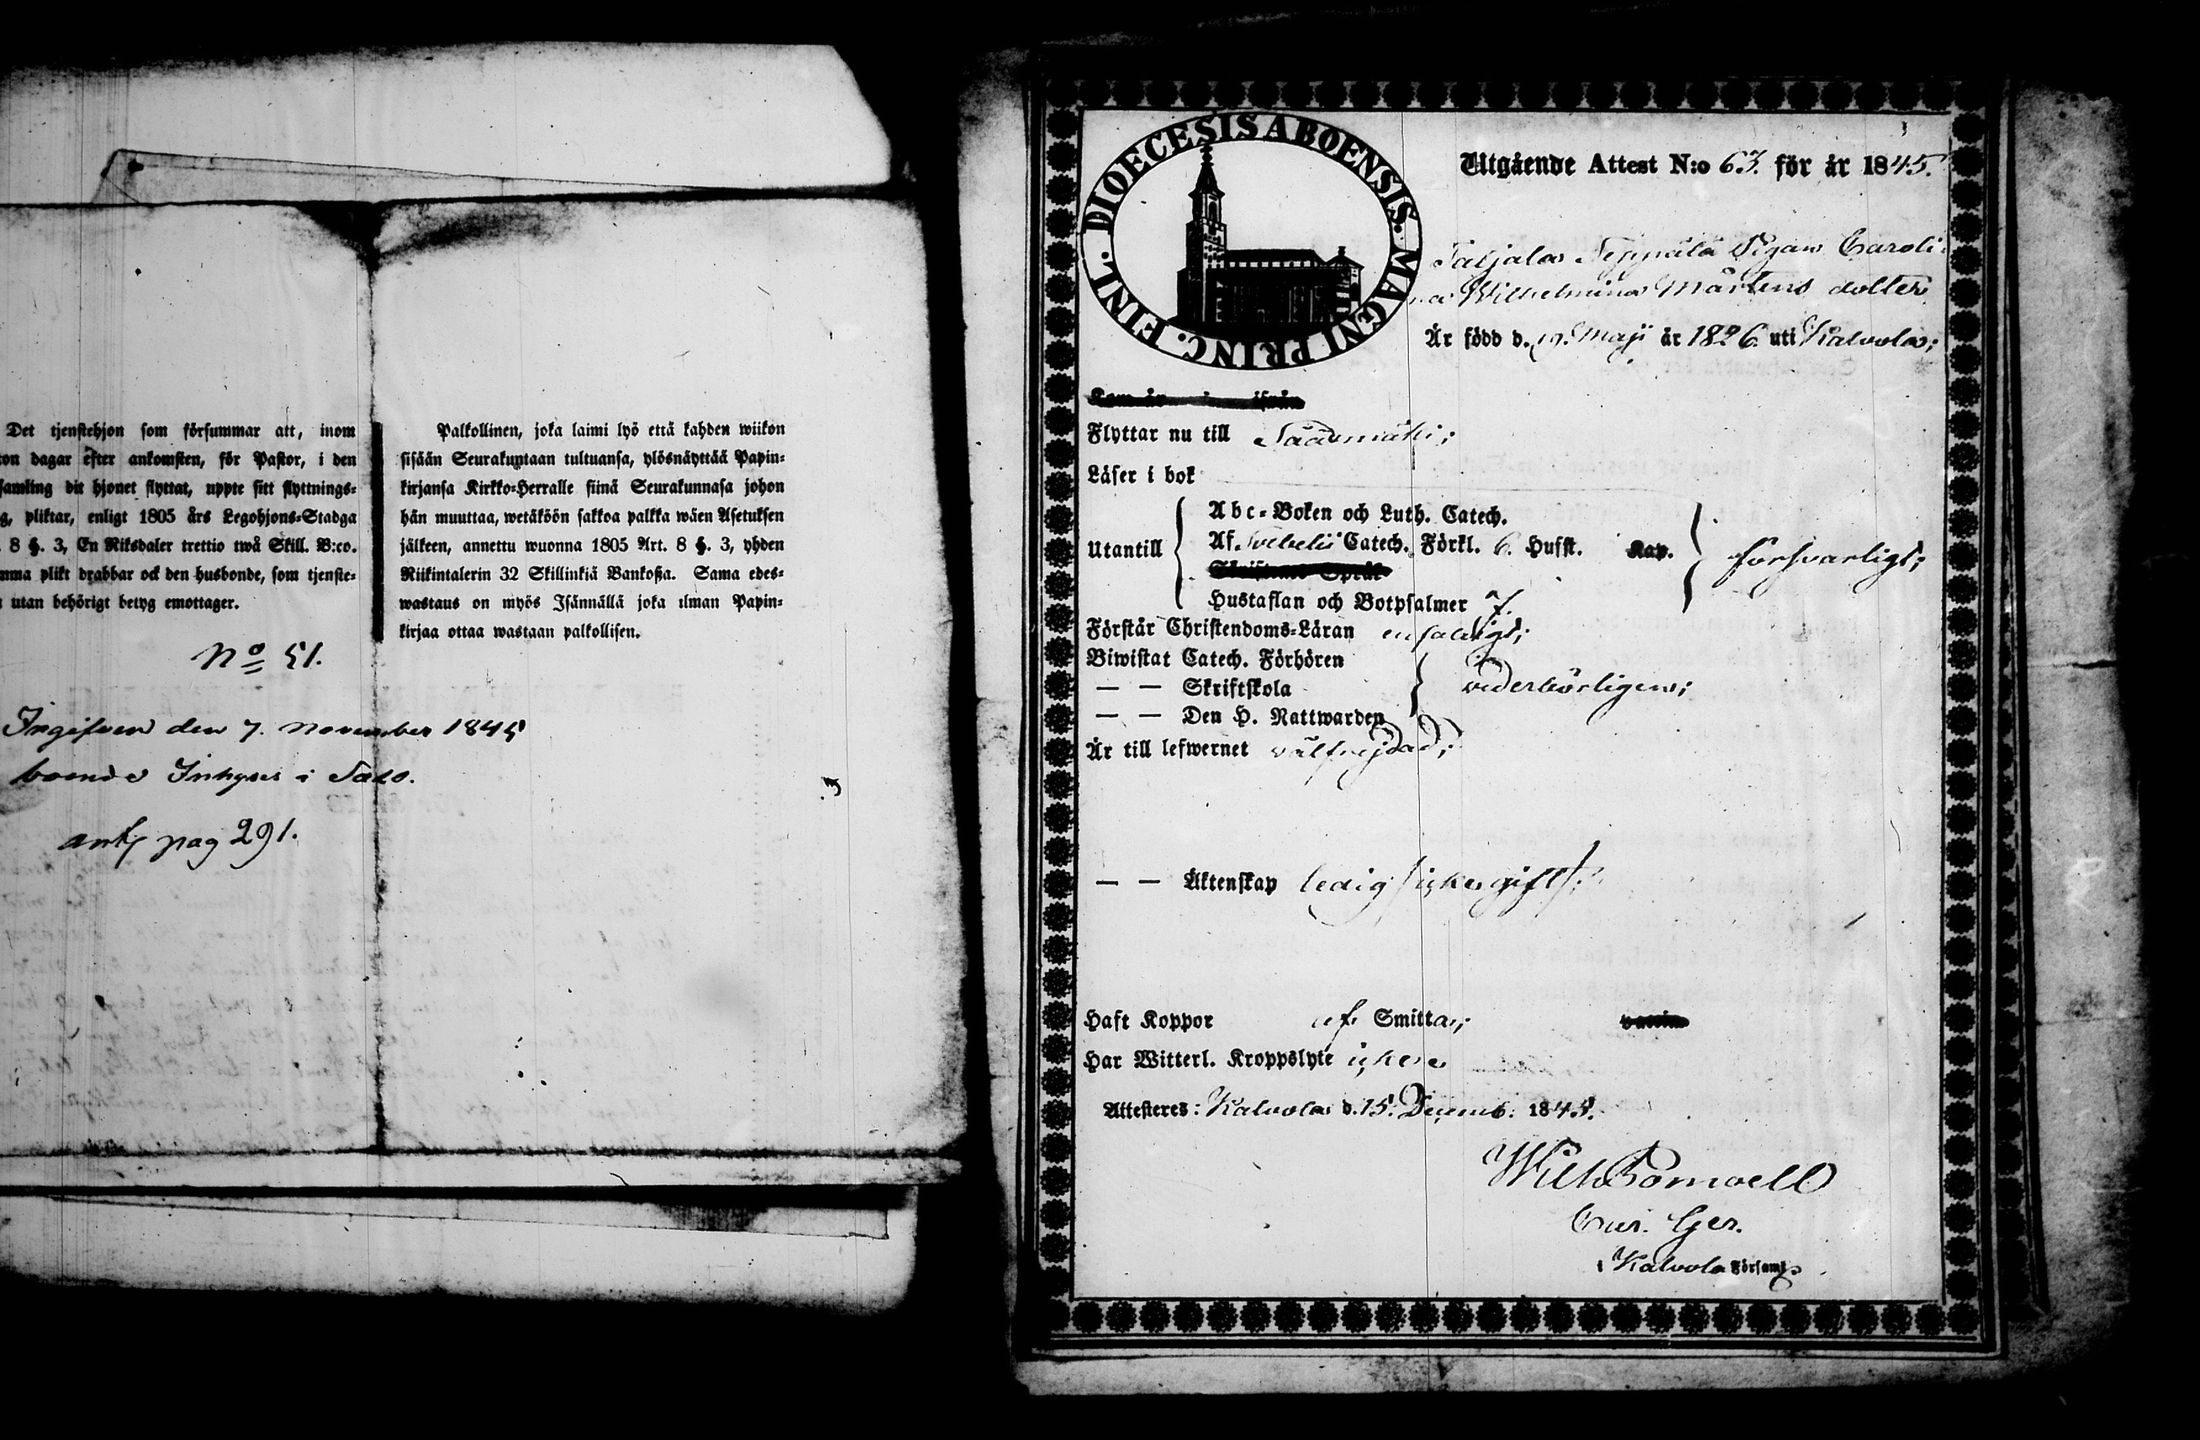 Det tjenstehjon som försummar att, inom
ton dagar efter ankomsten, för Pastor, i den
samling dit hjonet flyttat, uppte sitt flyttnings-
g, pliktar, enligt 1805 års Legohjons-Stadga
8 §. 3, En Riksdaler trettio twå Skill. B:co.
mma plikt drabbar ock den husbonde, som tjenste-
utan behörigt betyg emottager.
Palkollinen, joka laimi lyö että kahden wiikon
sisään Seurakuntaan tultuansa, ylösnäyttää Papin-
kirjansa Kirkko-Herralle siinä Seurakunnasa johon
hän muuttaa, wetäköön sakkoa palkka wäen Asetuksen
jälkeen, annettu wuonna 1805 Art. 8 §. 3, yhden
Riikintalerin 32 Skillinkiä Bankoßa. Sama edes-
wastaus on myös Isännällä joka ilman Papin-
kirjaa ottaa wastaan palkollisen.
No 51.
Ingifven den 7. November 1845
boende Inhyses i
pag 291.
DIOECESIS ABOENSIS. MAGNI PRINC. FINL.
Utgående Attest N:o 63. för år 1845.
Pigan Caroli-
na Wilhelmina Mårtens dotter
Är född d. 19. Maji år 1826. uti Kalvola;
Flyttar nu till Sääxmäki;
Läser i bok
Utantill
Abc-Boken och Luth. Catech.
Af Svebelii Catech. Förkl. 6. Hufst. Kap.
Hustaflan och Botpsalmer 7.
försvarligt;
Förstår Christendoms-Läran enfaldigt;
Biwistat Catech. Förhören
— — Skriftskola
— — Den H. Nattwarden
vederbörligen;
Är till lefwernet välfrejdad;
— — Äktenskap ledig
Haft Koppor af Smitta;
Har Witterl. Kroppslyte icke
Attesteres: Kalvola d. 15. Decemb. 1845.
Kalvola Församl.